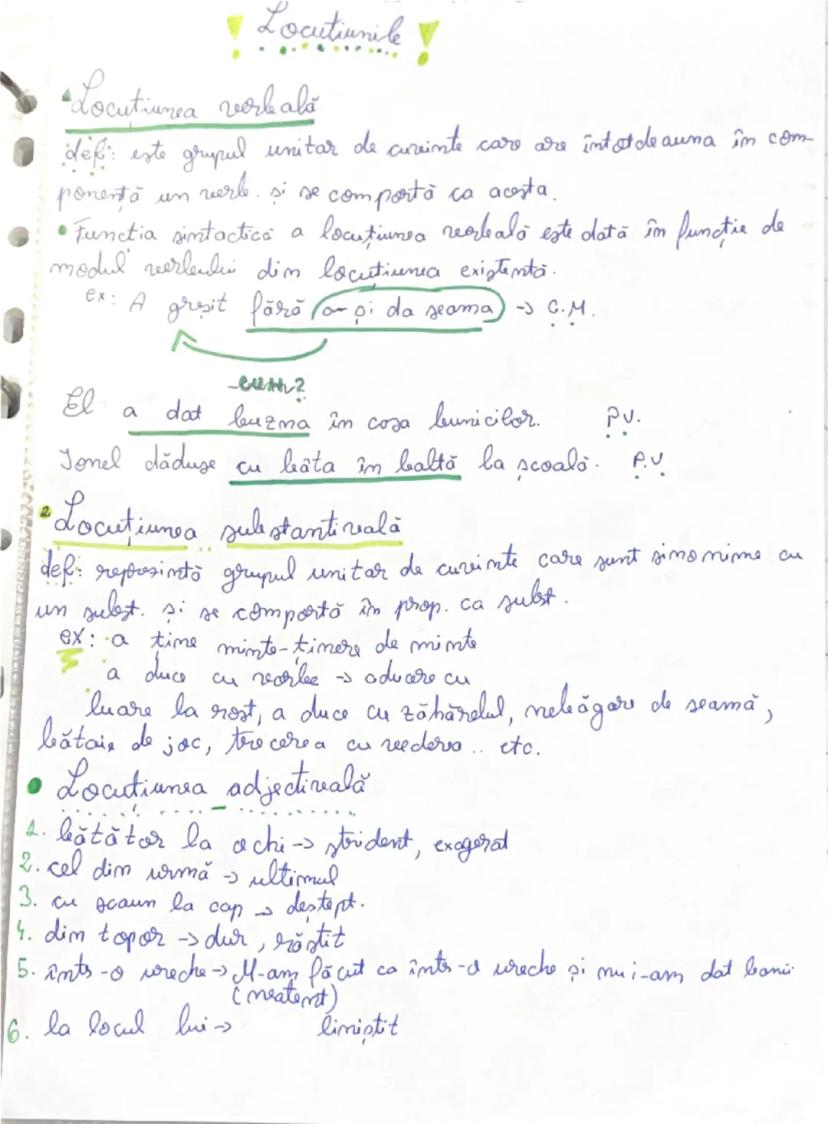 ! Locutiunile !
1 Locuțiunea verbală
def: este grupul unitar de cuvinte care are întotdeauna în com-
ponență un verb. și se comportă ca acesta.
• Functia sintactică a locuțiunea verbală este dată în funcție de
modul verbului din locuțiunea existentă.
ex: A greșit fără a-și da seama -> C.M.
-cum?
El a dat buzna în casa bunicilor. P.V.
Ionel dăduse cu bâta în baltă la școală. P.V
2 Locuțiunea substantivală
def: reprezintă grupul unitar de cuvinte care sunt sinonime cu
un subst. și se comportă în prop. ca subst.
ex: a ține minte-ținere de minte
a duce cu vorbe -> aducere cu
luare la rost, a duce cu zăhărelul, nebăgare de seamă,
bătaie de joc, trecerea cu vederea .. etc.
• Locuțiunea adjectivală
1. bătător la ochi -> strident, exagerat
2. cel din urmă -> ultimul
3. cu scaun la cap -> deștept.
4. din topor -> dur, răstit
5. într-o ureche -> M-am făcut ca într-o ureche și nu i-am dat banii
(neatent)
6. la locul lui -> liniștit